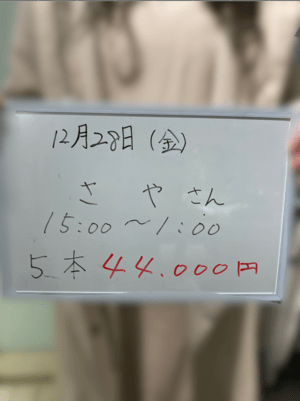 12月28日(金)
さやさん
15:00~1:00
5本 44.000円